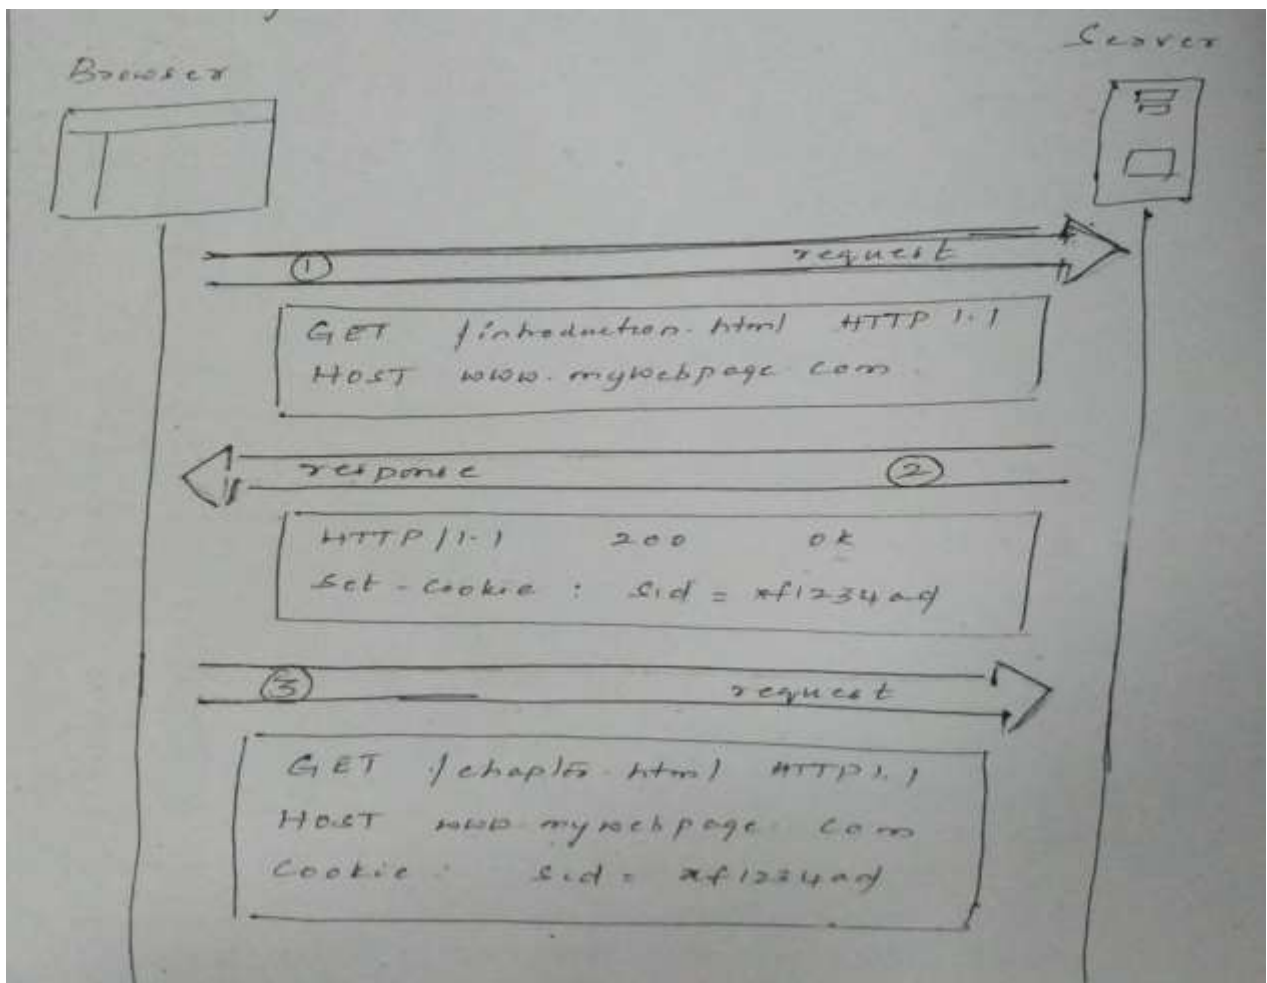 Browser
Server
1 request
GET /introduction.html HTTP 1.1
HOST www.mywebpage.com
response 2
HTTP/1.1 200 ok
Set-Cookie : Sid = xf1234ad
3 request
GET /chapter.html HTTP1.1
HOST www.mywebpage.com
Cookie : Sid = xf1234ad